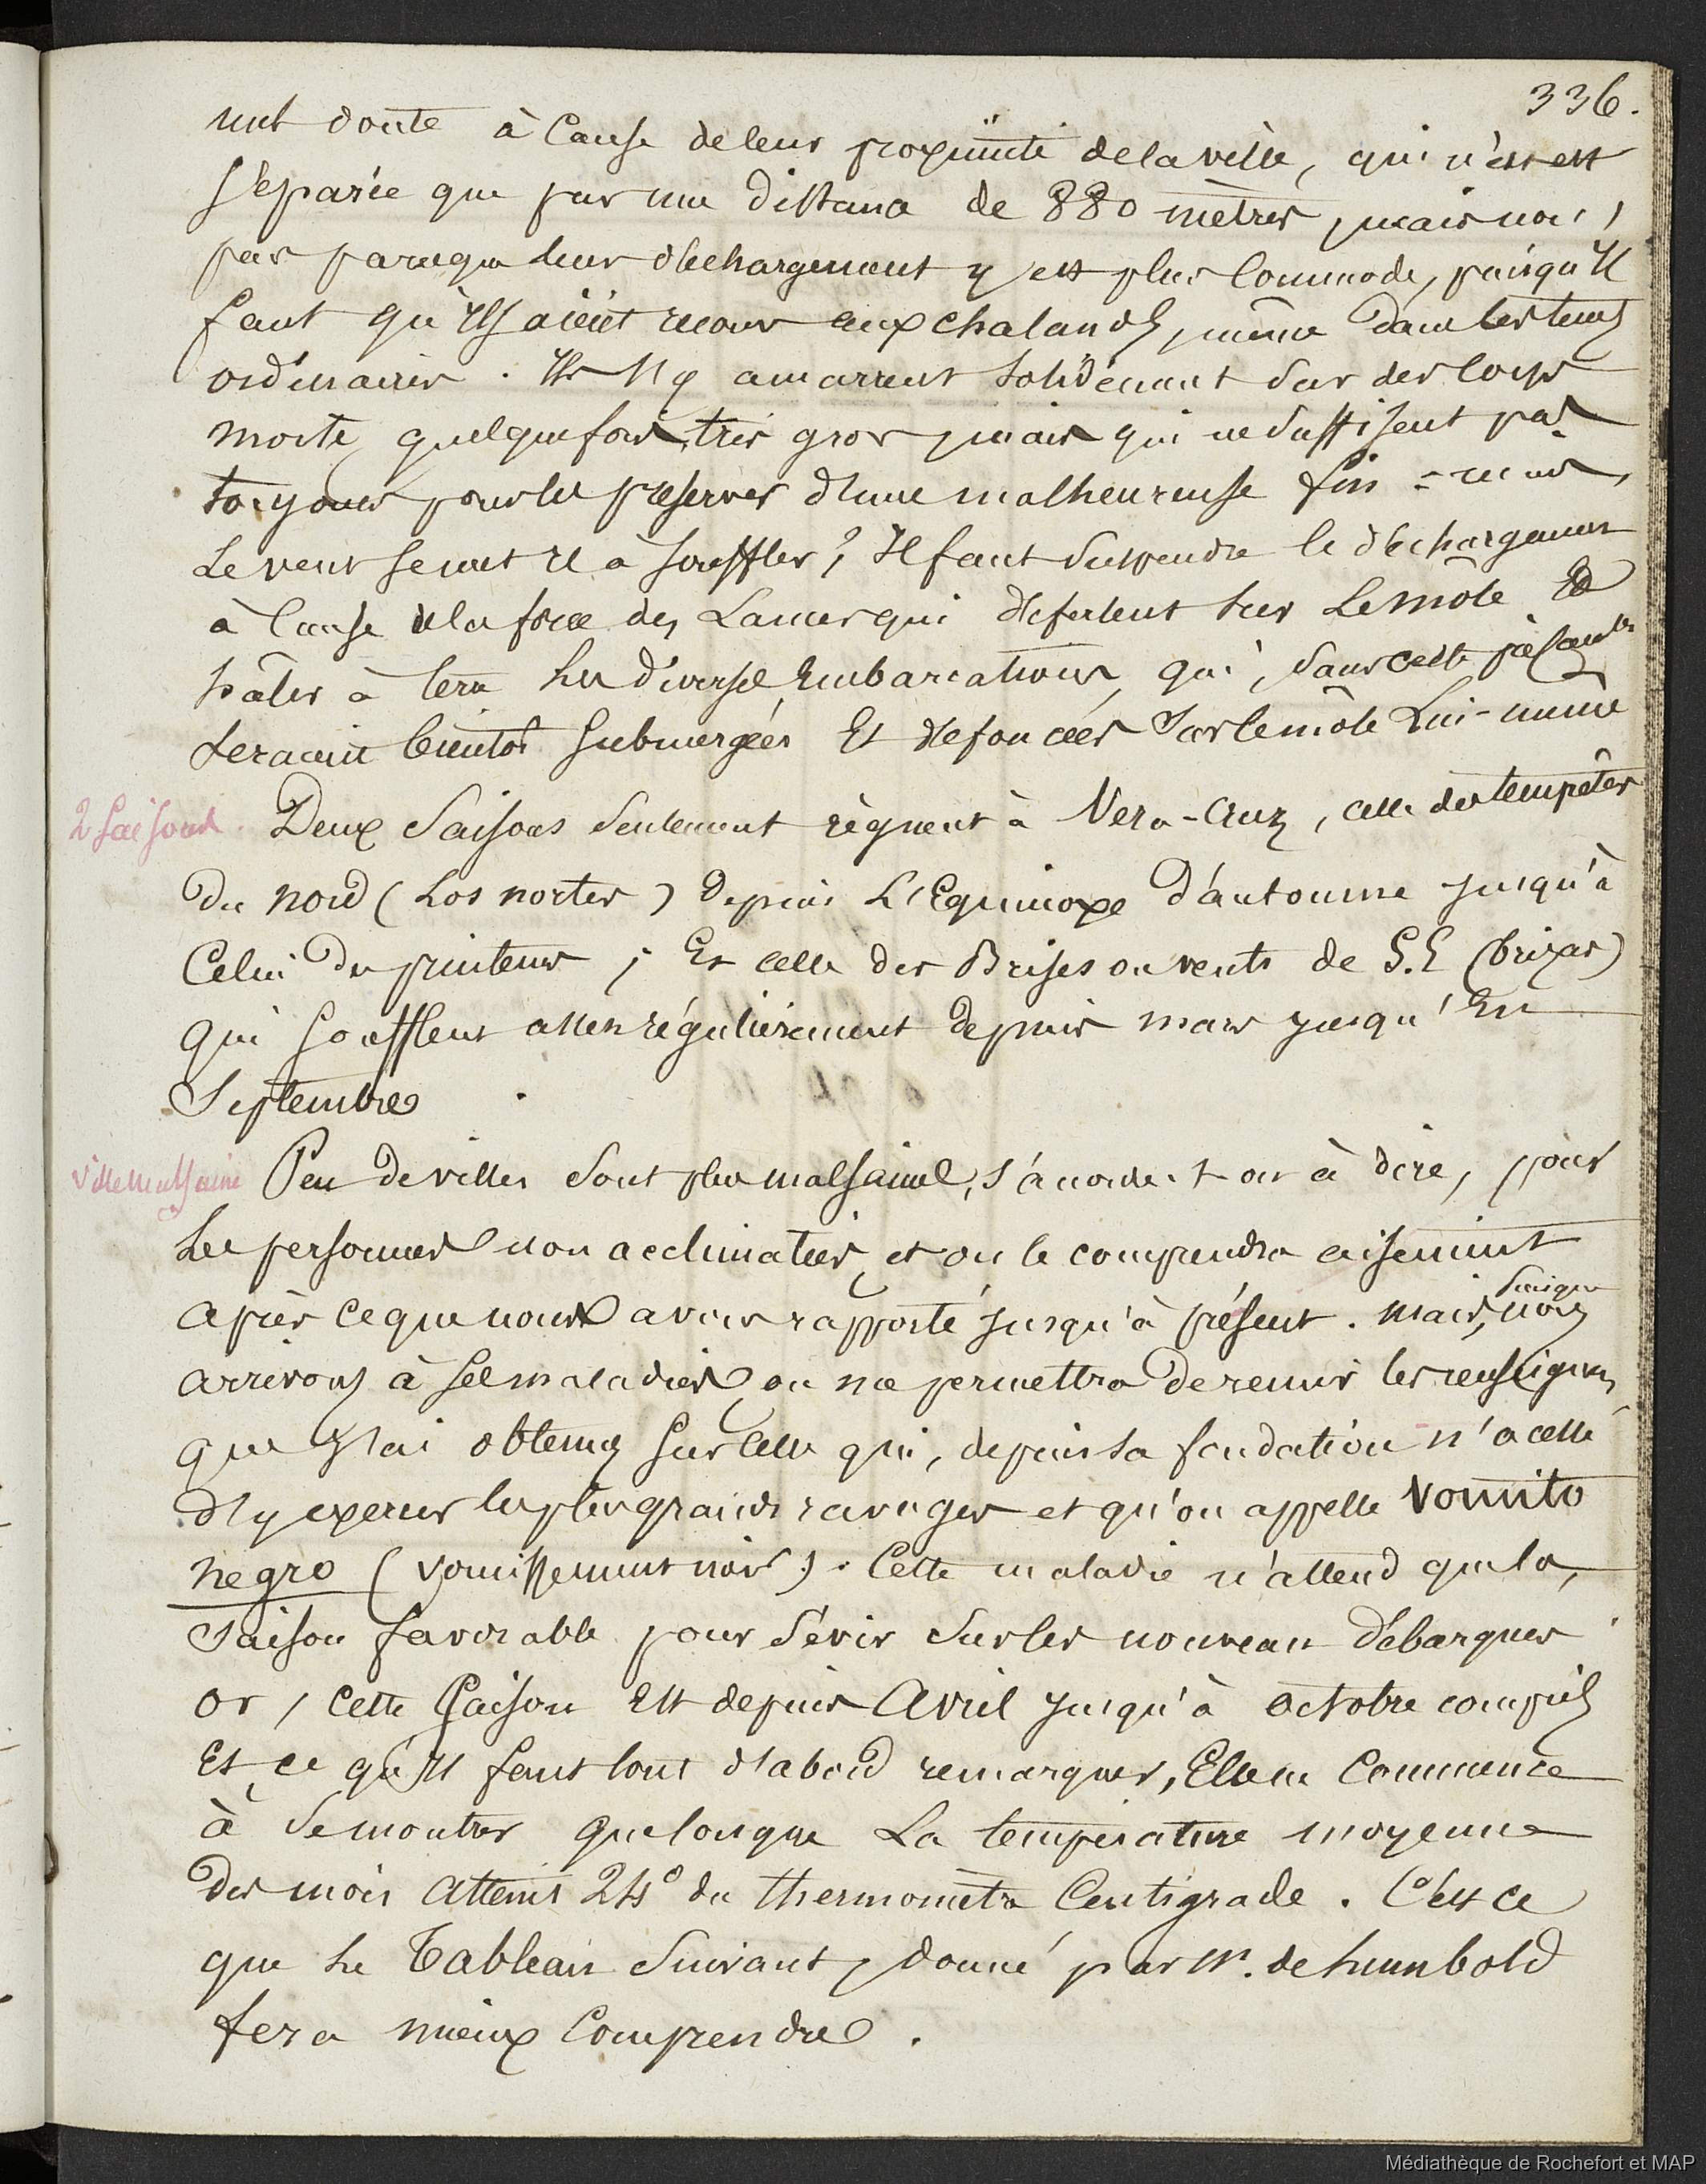 336.
nul doute à Cause de leur proximité de la ville, qui n'en est
séparée que par une distance de 880 mètres, mais non
pas parceque leur déchargement y est plus Commode, puisqu'Il
faut qu'Ils aient recours aux chalands, même dans les temps
ordinaires. Ils s'y amarrent solidement sur des corps
morts, quelquefois très gros, mais qui ne suffisent pas
toujours pour les préserver d'une malheureuse fin =
Le vent se met il à souffler? Il faut suspendre le déchargement
à Cause de la force des Lames qui déferlent sur Le môle Et
hâler à terre Les diverses Embarcations, qui, sans cette précaution
seraient bientôt submergées Et défoncées sur le môle Lui-même
2 Saisons. Deux Saisons seulement règnent à Vera-Cruz, celle des tempêtes
du nord (Los nortes) depuis L'Equinoxe d'automne jusqu'à
Celui du printems; Et celle des Brises ou vents de S.E (brizas)
qui soufflent assez régulièrement depuis mars jusqu'En
Septembre.
Ville malsaine Peu de villes sont plus malsaines, s'accorde-t-on à dire, pour
Les personnes non acclimatées, et on le comprendra aisément
après ce que nous avons rapporté jusqu'à présent. mais, puisque nous
arrivons à ses maladies, on me permettra de réunir les renseignemens
que J'ai obtenus sur celle qui, depuis sa fondation n'a cessé
d'y exercer les plus grands ravages et qu'on appelle vomito
negro (vomissement noir). Cette maladie n'attend que la
saison favorable pour sévir sur les nouveau débarqués
or, cette Saison Est depuis Avril jusqu'à octobre compris
Et ce qu'Il faut tout d'abord remarquer, Elle ne Commence
à se montrer que lorsque La température moyenne
des mois Atteint 24° du thermomètre Centigrade. C'est ce
que Le Tableau suivant, donné par Mr. de humbold
fera mieux Comprendre.
Médiathèque de Rochefort et MAP